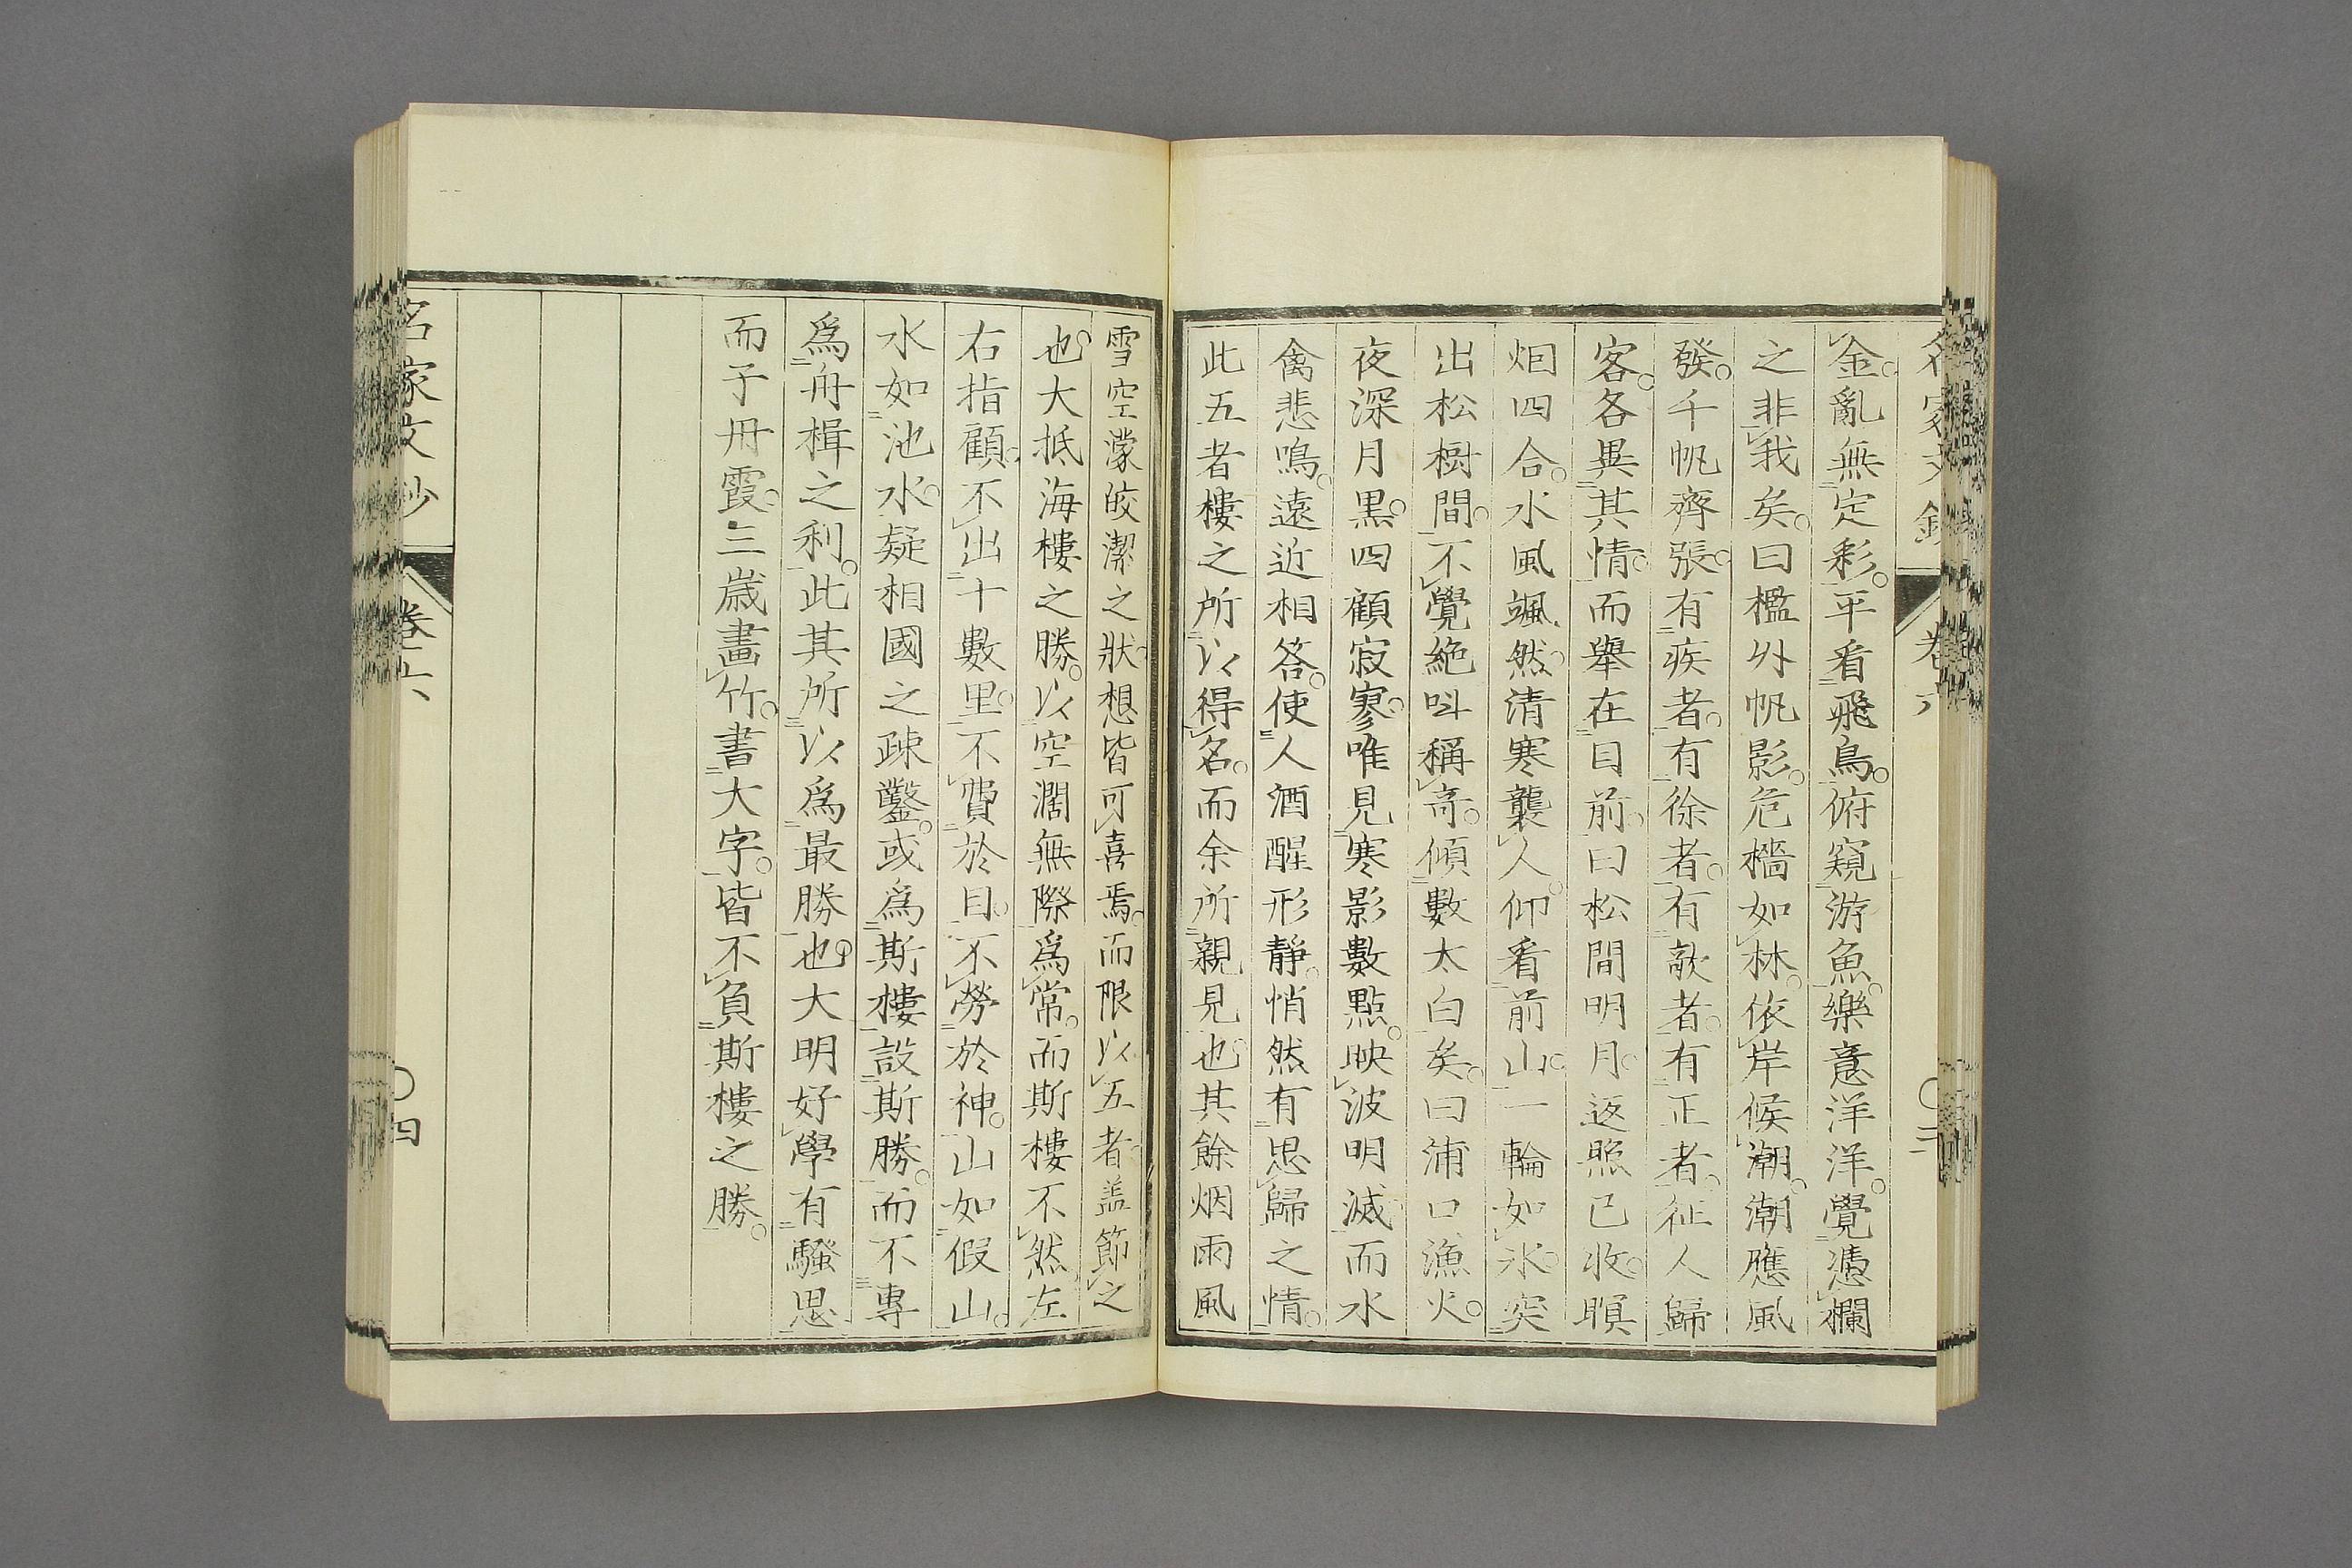 金。亂無定彩。平看飛鳥。俯窺游魚。樂意洋洋。覺憑欄
之非我矣。曰檻外帆影。危檣如林。依岸候潮。潮應風
發。千帆齊張。有疾者。有徐者。有欹者。有正者。征人歸
客。各異其情。而舉在目前。曰松間明月。返照已收。暝
烟四合。水風颯然。清寒襲人。仰看前山。一輪如氷。突
出松樹間。不覺絶呌稱奇。傾數太白矣。曰浦口漁火。
夜深月黒。四顧寂寥。唯見寒影數點。映波明滅。而水
禽悲鳴。遠近相答。使人酒醒形靜。悄然有思歸之情。
此五者樓之所以得名。而余所親見也。其餘烟雨風
雪空濛皎潔之狀。想皆可喜焉。而限以五者。盖節之
也。大抵海樓之勝。以空濶無際爲常。而斯樓不然。左
右指顧。不出十數里。不費於目。不勞於神。山如假山。
水如池水。疑相國之疎鑿。或爲斯樓設斯勝。而不專
爲舟楫之利。此其所以爲最勝也。大明好學有騷思
而子冊霞。三歳畫竹。書大字。皆不負斯樓之勝。
名家文鈔
卷六
〇四